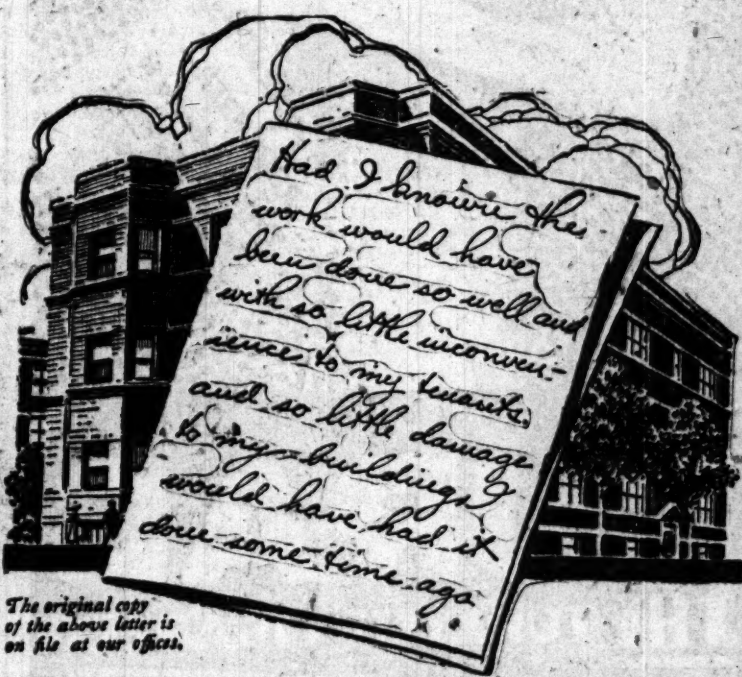 Had I known the
work would have
been done so well and
with so little inconven-
ience to my tenants,
and so little damage
to my buildings I
would have had it
done some time ago
The original copy
of the above letter is
on file at our offices.